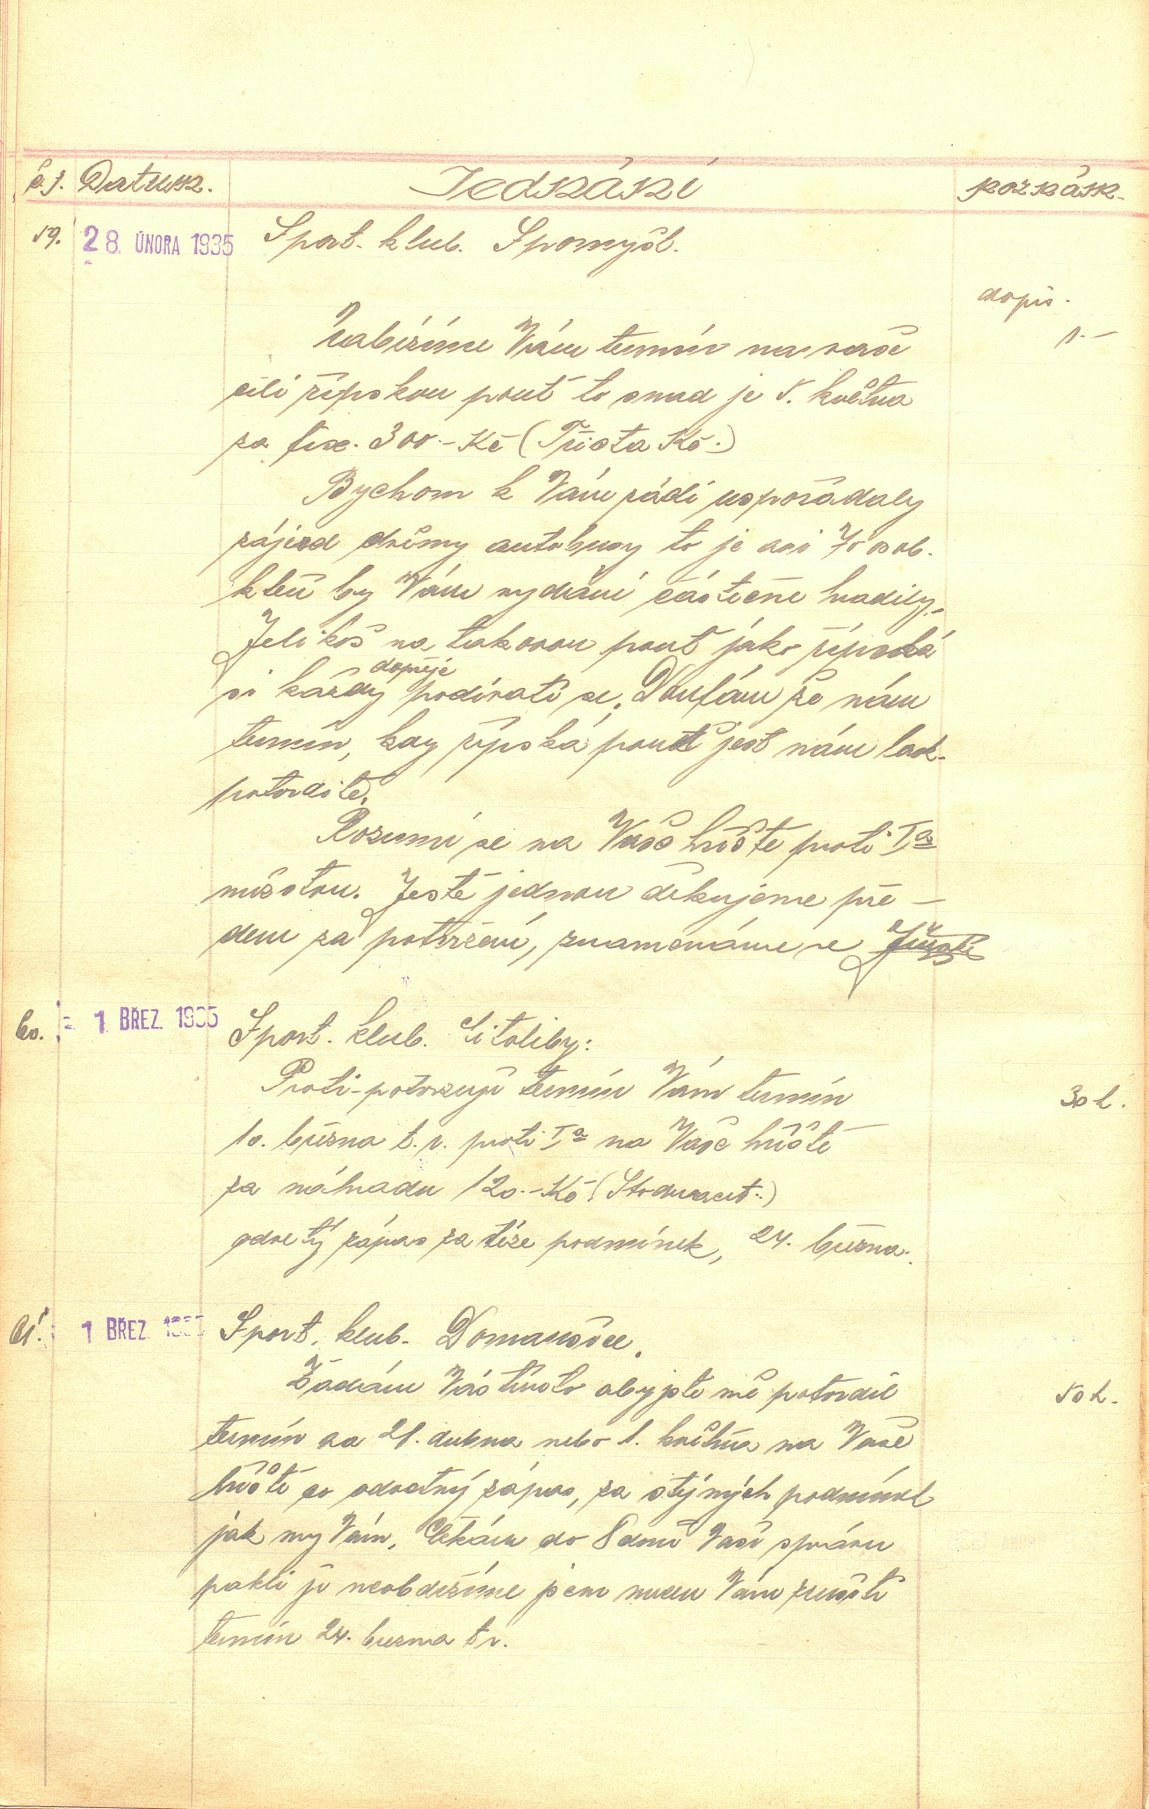 č.j. Datum. Jednání poznám.
59. 28. ÚNORA 1935 Sport. klub. Spomyšl.
dopis.
1.–
Nabízíme Vám termín na vaše
čili řípskou pouť to snad je 5. května
za fix. 300.– Kč (Třista Kč.)
Bychom k Vám rádi uspořádaly
zájezd dvěmy autobusy to je asi 70 osob.
kteří by Vám vydání částečně hradily.
Jelikoš na takovou pouť jako řípská
dopřeje
si každý podívati se. Doufám že nám
termín, kdy řípská pouť jest nám lask.
potvrdíte.
Rozumí se na Vaše hřiště proti Ia
mužstvu. Ještě jednou děkujeme pře –
dem za potvrzení, znamenáme se
60. – 1. BŘEZ. 1935 Sport. klub. Citoliby:
Proti-potvrzuji termín Vám termín
30 h.
10. března t.r. proti Ia na Vaše hřiště
za náhradu 120.– Kč. (Stodvacet.)
odvetý zápas za téže podmínek, 24. března.
61. 1 BŘEZ. Sport. klub. Domoušice.
Žádám Vás tímto aby jste mě potvrdil
50 h.
termín na 21. dubna nebo 1. května na Vaše
hřiště co odvatný zápas, za stejných podmínek
jak my Vám. Čekám do 8 dnů Vaší zprávu
pakli ji neobdržíme jsem nucen Vám zrušiti
termín 24. března t r.